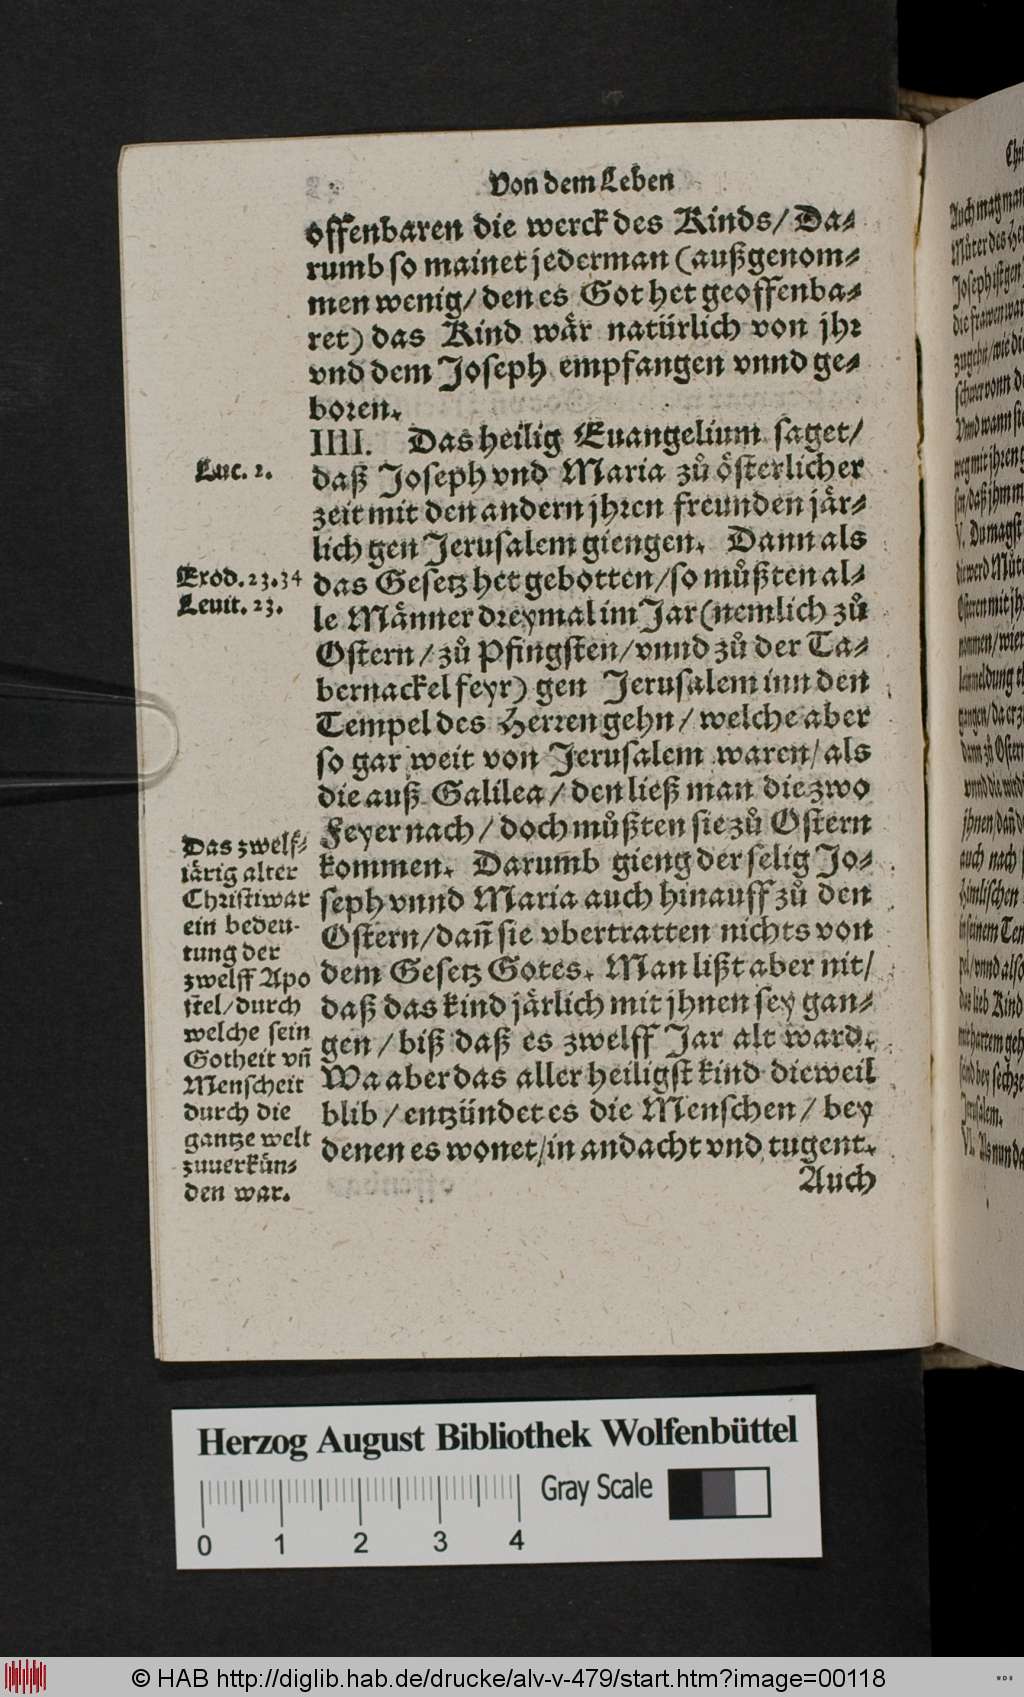 Von dem Leben
offenbaren die werck des Kinds/ Da-
rumb so mainet jederman (außgenom-
men wenig/ den es Got het geoffenba-
ret) das Kind wår natürlich von jhr
vnd dem Joseph empfangen vnnd ge-
boren.
IIII. Das heilig Euangelium saget/
Luc. 2.
daß Joseph vnd Maria zů österlicher
zeit mit den andern jhren freunden jår-
lich gen Jerusalem giengen. Dann als
Exod. 23. 34
das Gesetz het gebotten/ so můßten al-
Leuit. 23.
le Månner dreymal im Jar (nemlich zů
Ostern/ zů Pfingsten/ vnnd zů der Ta-
bernackel feyr) gen Jerusalem inn den
Tempel des Herren gehn/ welche aber
so gar weit von Jerusalem waren/ als
die auß Galilea/ den ließ man die zwo
Feyer nach/ doch můßten sie zů Ostern
kommen. Darumb gieng der selig Jo-
seph vnnd Maria auch hinauff zů den
Ostern/ dañ sie vbertratten nichts von
dem Gesetz Gotes. Man lißt aber nit/
daß das kind jårlich mit jhnen sey gan-
gen/ biß daß es zwelff Jar alt ward.
Wa aber das aller heiligst kind dieweil
blib/ entzündet es die Menschen/ bey
denen es wonet/ in andacht vnd tugent.
Auch
Das zwelf-
iårig alter
Christi war
ein bedeu-
tung der
zwelff Apo
stel/ durch
welche sein
Gotheit vñ
Menscheit
durch die
gantze welt
zuuerkün-
den war.
Herzog August Bibliothek Wolfenbüttel
0 1 2 3 4
Gray Scale
© HAB http://diglib.hab.de/drucke/alv-v-479/start.htm?image=00118